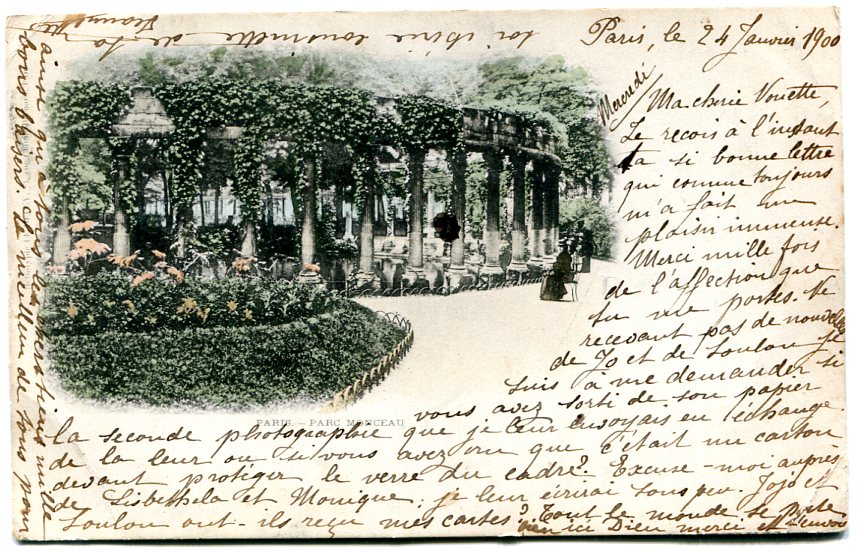 Paris, le 24 Janvier 1900
Mercredi
Ma cherie Vonette,
Je reçois à l'instant
ta si bonne lettre
qui comme toujours
m'a fait un
plaisir immense.
Merci mille fois
de l'affection que
tu me portes. Ne
recevant pas de nouvelles
de Jo et de Loulou je
suis à me demander si
vous avez sorti de son papier
la seconde photographie que je leur envoyais en échange
de la leur ou si vous avez cru que c'était un carton
devant protéger le verre du cadre? Excuse-moi auprès
de Lisbethela et Monique; je leur écrirai sous peu. Jojo et
Loulou ont-ils reçu mes cartes? Tout le monde se porte
bien ici Dieu merci et t'envoie
ainsi qu'à tous les mille
bons baisers. Le meilleur de tous pour
toi chérie de la
PARIS. — PARC MONCEAU